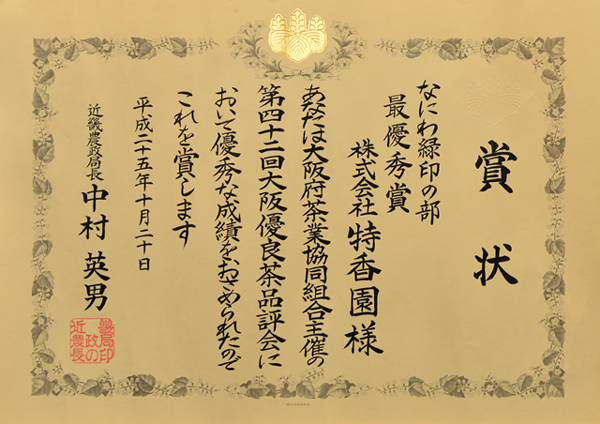 賞状
なにわ緑印の部
最優秀賞
株式会社 特香園様
あなたは大阪府茶業協同組合主催の
第四十二回大阪優良茶品評会に
おいて優秀な成績をおさめられたので
これを賞します
平成二十五年十月二十日
近畿農政局長 中村英男
近畿農政局長の印